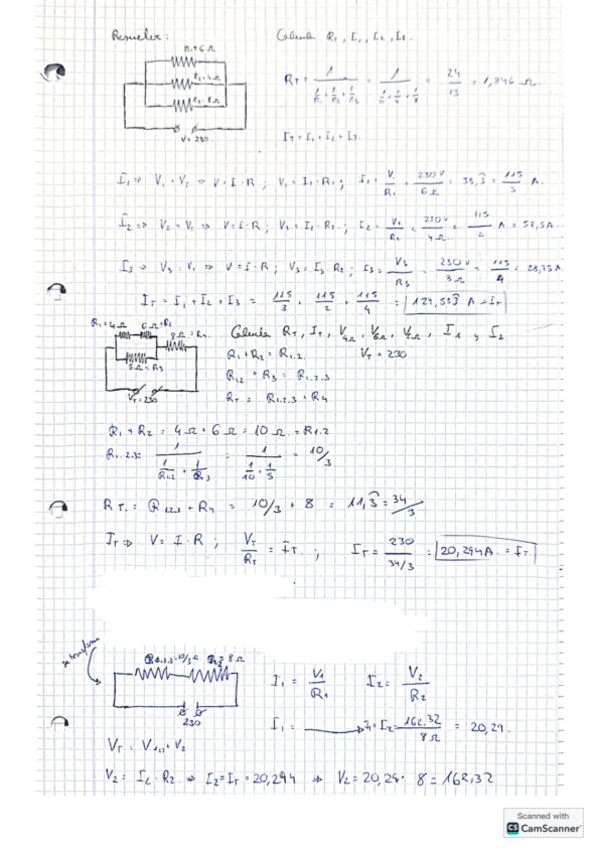 Resuelve:
Calcula R_T, I_1, I_2, I_T.
R_1=6Ω
R_2=4Ω
R_3=8Ω
V=230
R_T = 1/(1/R_1+1/R_2+1/R_3) = 1/(1/6+1/4+1/8) = 24/13 = 1,846 Ω.
I_T = I_1 + I_2 + I_3.
I_1 ⇒ V_1 = V_T ⇒ V=I·R ; V_1 = I_1·R_1 ; I_1 = V_1/R_1 = 230V/6Ω = 38,3 = 115/3 A.
I_2 ⇒ V_2 = V_T ⇒ V=I·R ; V_2 = I_2·R_2 ; I_2 = V_2/R_2 = 230V/4Ω = 115/2 A = 57,5A.
I_3 ⇒ V_3 = V_T ⇒ V=I·R ; V_3 = I_3·R_2 ; I_3 = V_3/R_3 = 230V/8Ω = 115/4 = 28,75A
I_T = I_1 + I_2 + I_3 = 115/3 + 115/2 + 115/4 = 124,583 A = I_T
R_1=4Ω 6Ω=R_2
8Ω=R_4
5Ω=R_3
V_T=230
Calcula R_T, I_T, V_4Ω, V_6Ω, I_1 y I_2
V_T = 230
R_1 + R_2 = R_1.2.
R_1.2 + R_3 = R_1.2.3
R_T = R_1.2.3 + R_4
R_1 + R_2 = 4Ω + 6Ω = 10Ω = R_1.2
R_1.2.3 = 1/(1/R_1.2 + 1/R_3) = 1/(1/10 + 1/5) = 10/3
R_T = R_1.2.3 + R_4 = 10/3 + 8 = 11,3 = 34/3
I_T ⇒ V = I·R ; V_T/R_T = I_T ; I_T = 230/(34/3) = 20,294A = I_T
R_1.2.3=10/3Ω 8Ω
230
I_1 = V_1/R_1 I_2 = V_2/R_2
I_1 = → I_1=I_2 = 162,32/8Ω = 20,29.
V_T = V_1.2.3 + V_2
V_2 = I_2·R_2 ⇒ I_2=I_T = 20,294 ⇒ V_2 = 20,29·8 = 162,32
Scanned with
CS CamScanner